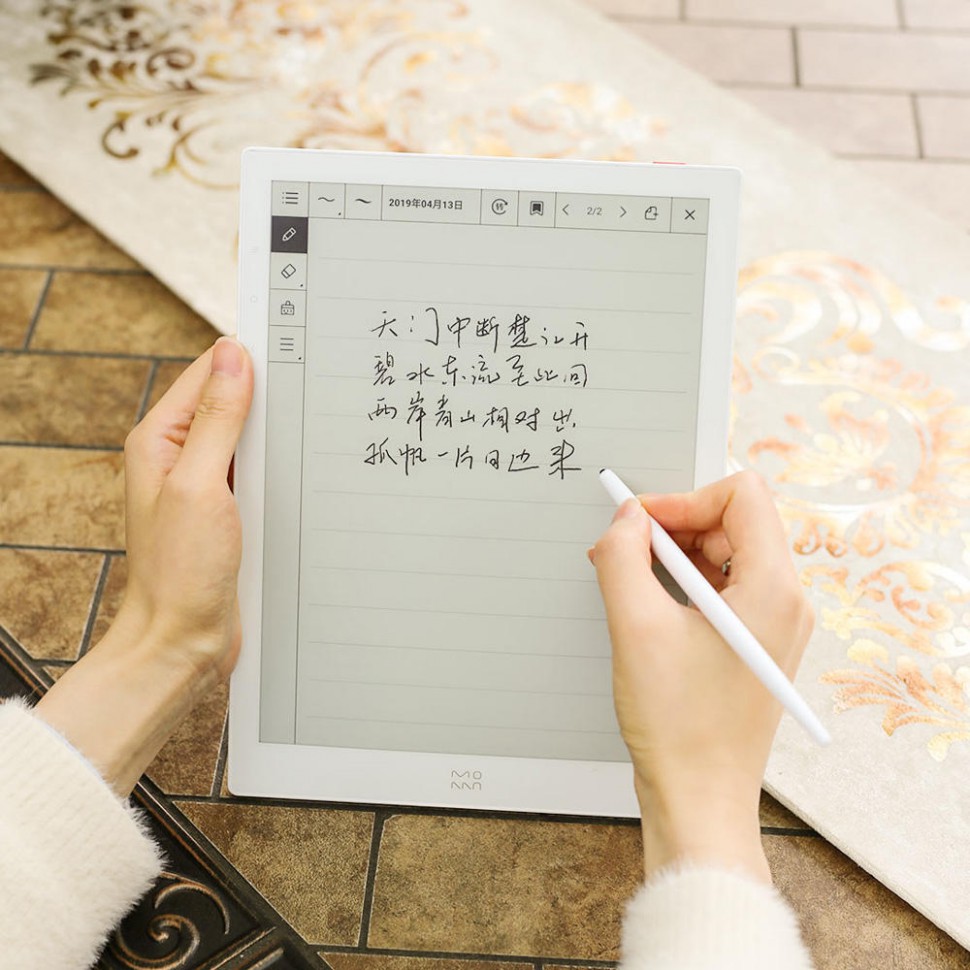 2019年04月13日 转 2/2
天门中断楚江开
碧水东流至此回
两岸青山相对出.
孤帆一片日边来.
MOAN